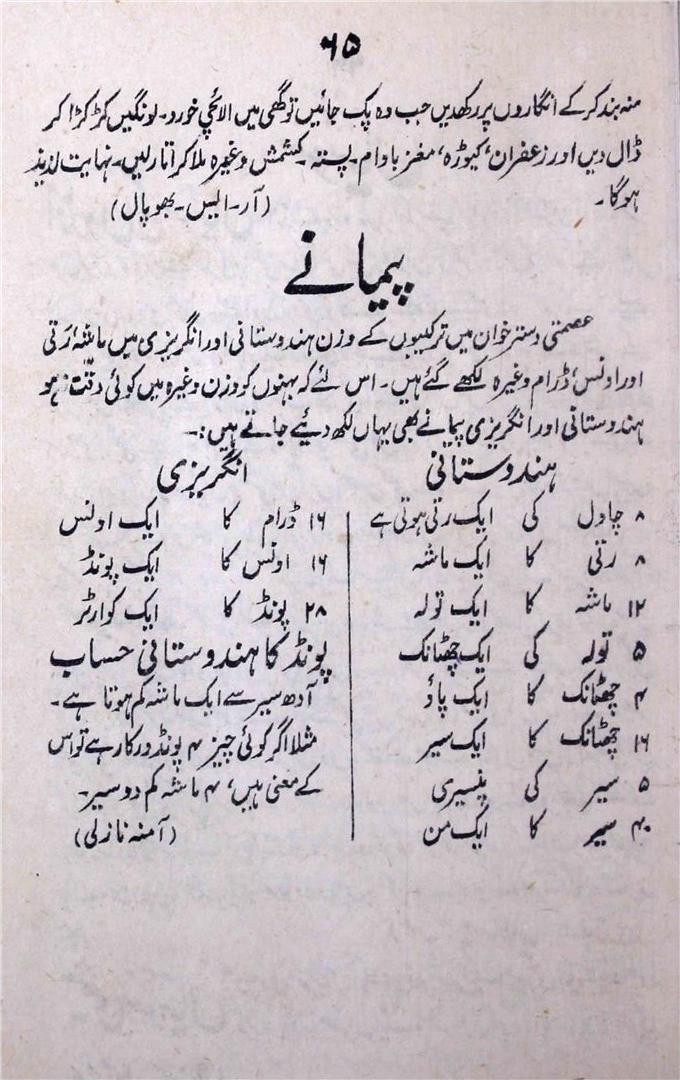 ۶۵
منہ بند کر کے انگاروں پر رکھدیں جب وہ پک جائیں تو گھی میں الائچی خورد۔ لونگیں کڑکڑا کر
ڈال دیں اور زعفران، کیوڑہ، مغز بادام۔ پستہ۔ کشمش وغیرہ ملا کر اتار لیں۔ نہایت لذیذ
ہوگا۔ (آر۔ ایس۔ بھوپال)
پیمانے
عصمتی دسترخوان میں ترکیبوں کے وزن ہندوستانی اور انگریزی میں ماشہ، رتی
اور اونس، ڈرام وغیرہ لکھے گئے ہیں۔ اس لئے کہ بہنوں کو وزن وغیرہ میں کوئی دقت نہ ہو
ہندوستانی اور انگریزی پیمانے بھی یہاں لکھ دئیے جاتے ہیں:۔
ہندوستانی
۸ چاول کی ایک رتی ہوتی ہے
۸ رتی کا ایک ماشہ
۱۲ ماشہ کا ایک تولہ
۵ تولہ کی ایک چھٹانک
۴ چھٹانک کا ایک پاؤ
۱۶ چھٹانک کا ایک سیر
۵ سیر کی پنسیری
۴۰ سیر کا ایک من
انگریزی
۱۶ ڈرام کا ایک اونس
۱۶ اونس کا ایک پونڈ
۲۸ پونڈ کا ایک کوارٹر
پونڈ کا ہندوستانی حساب
آدھ سیر سے ایک ماشہ کم ہوتا ہے۔
مثلا اگر کوئی چیز ۴ پونڈ درکار ہے تو اس
کے معنی ہیں، ۴ ماشہ کم دو سیر۔
(آمنہ نازلی)